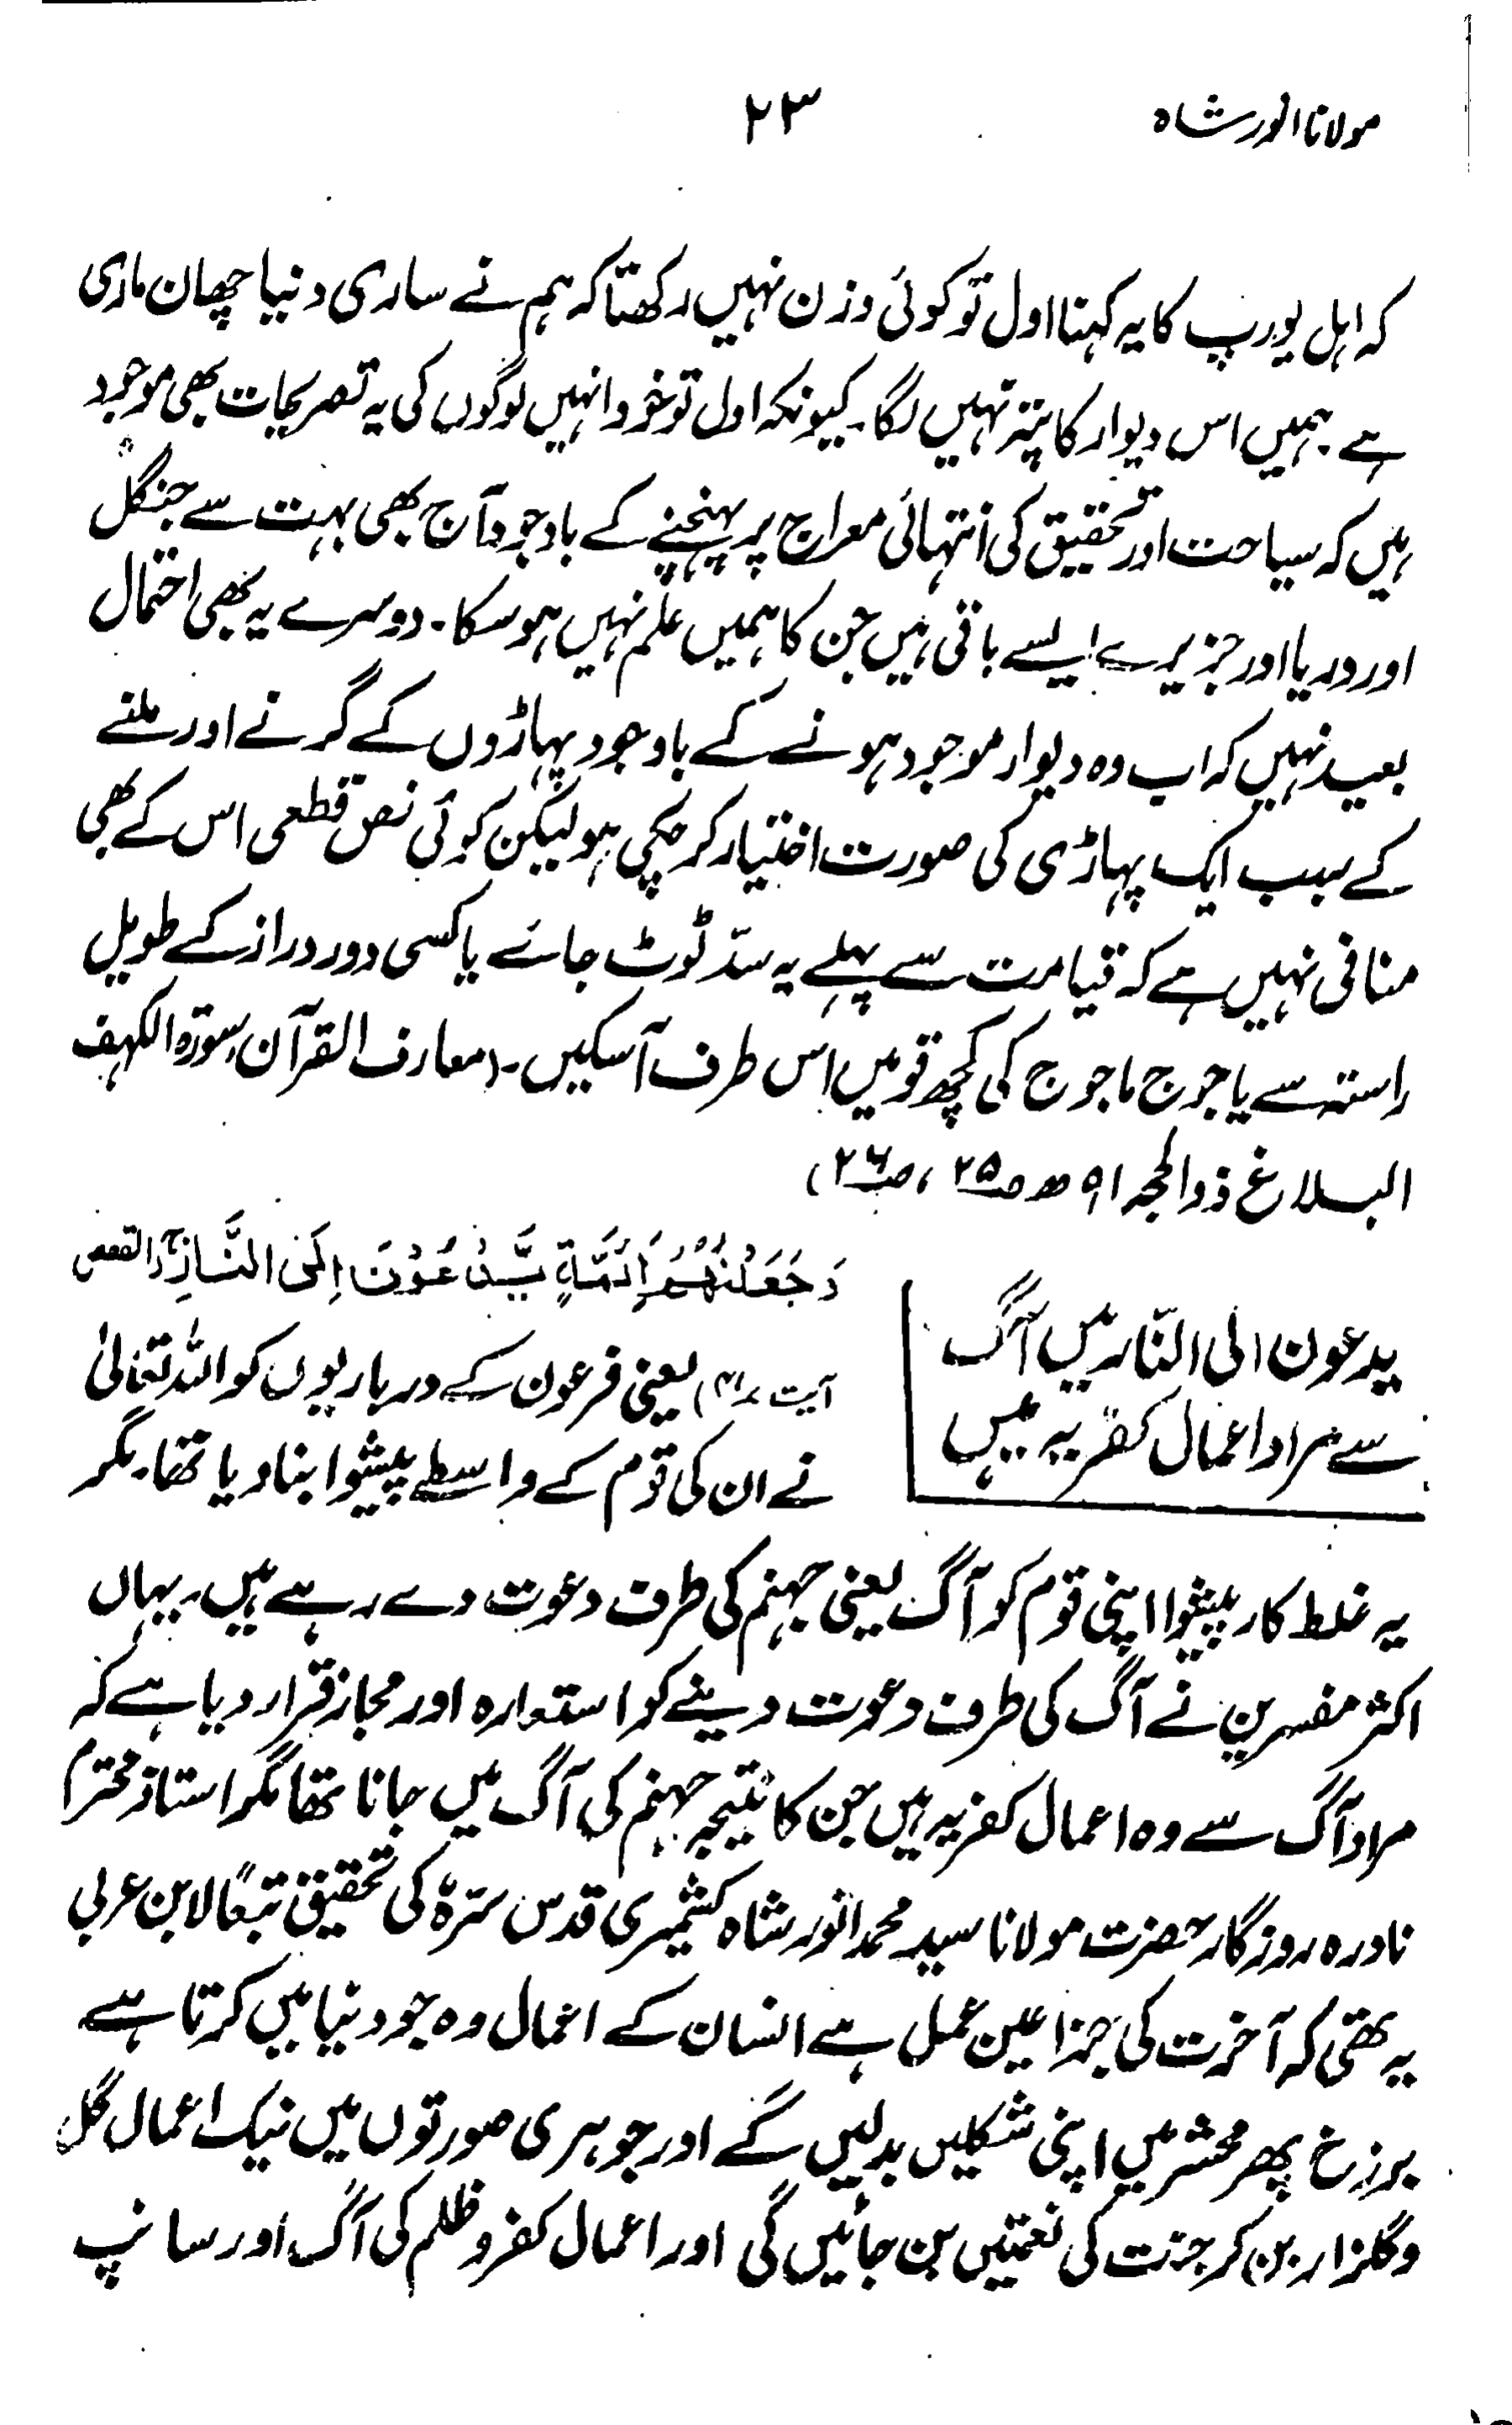 مولانا انور شاہ
۲۳
کہ اہل یورپ کا یہ کہنا اول تو کوئی وزن نہیں رکھتا کہ ہم نے ساری دنیا چھان ماری
ہے ہمیں اس دیوار کا پتہ نہیں لگا۔ کیونکہ اول تو خود انہیں لوگوں کی یہ تصریحات بھی موجود
ہیں کہ سیاحت اور تحقیق کی انتہائی معراج پر پہنچنے کے باوجود آج بھی بہت سے جنگل
اور دریا اور جزیرے ایسے باقی ہیں جن کا ہمیں علم نہیں ہو سکا۔ دوسرے یہ بھی احتمال
بعید نہیں کہ اب وہ دیوار موجود ہونے کے باوجود پہاڑوں کے گرنے اور ملنے
کے سبب ایک پہاڑی کی صورت اختیار کر چکی ہو لیکن کوئی نص قطعی اس کے بھی
منافی نہیں ہے کہ قیامت سے پہلے یہ سدّ ٹوٹ جائے یا کسی دور دراز کے طویل
راستہ سے یاجوج ماجوج کی کچھ قومیں اس طرف آسکیں۔ (معارف القرآن سورۃ الکہف
البلاغ ذوالحجہ ۹۱ھ ص۲۵، ص۲۶)
یدعون الی النّار میں آگ
سے مراد اعمال کفریہ ہیں
وَجَعَلْنٰهُمْ اَئِمَّةً يَّدْعُوْنَ اِلَى النَّارِ (القصص
آیت ۴۱) یعنی فرعون کے درباریوں کو اللہ تعالیٰ
نے ان کی قوم کے واسطے پیشوا بنا دیا تھا۔ مگر
یہ غلط کار پیشوا اپنی قوم کو آگ یعنی جہنم کی طرف دعوت دے رہے ہیں۔ یہاں
اکثر مفسرین نے آگ کی طرف دعوت دینے کو استعارہ اور مجاز قرار دیا ہے کہ
مراد آگ سے وہ اعمال کفریہ ہیں جن کا نتیجہ جہنم کی آگ میں جانا تھا مگر استاذ محترم
نادرہ روزگار حضرت مولانا سید محمد انور شاہ کشمیری قدس سّرہٗ کی تحقیق تبعًا لابن عربی
یہ تھی کہ آخرت کی جزا عین عمل ہے انسان کے اعمال وہ جو دنیا میں کرتا ہے
برزخ پھر محشر میں اپنی شکلیں بدلیں گے اور جوہری صورتوں میں نیک اعمال گل
وگلزار بن کر جنت کی نعمتیں بن جائیں گی اور اعمال کفر و ظلم کی آگ اور سانپ